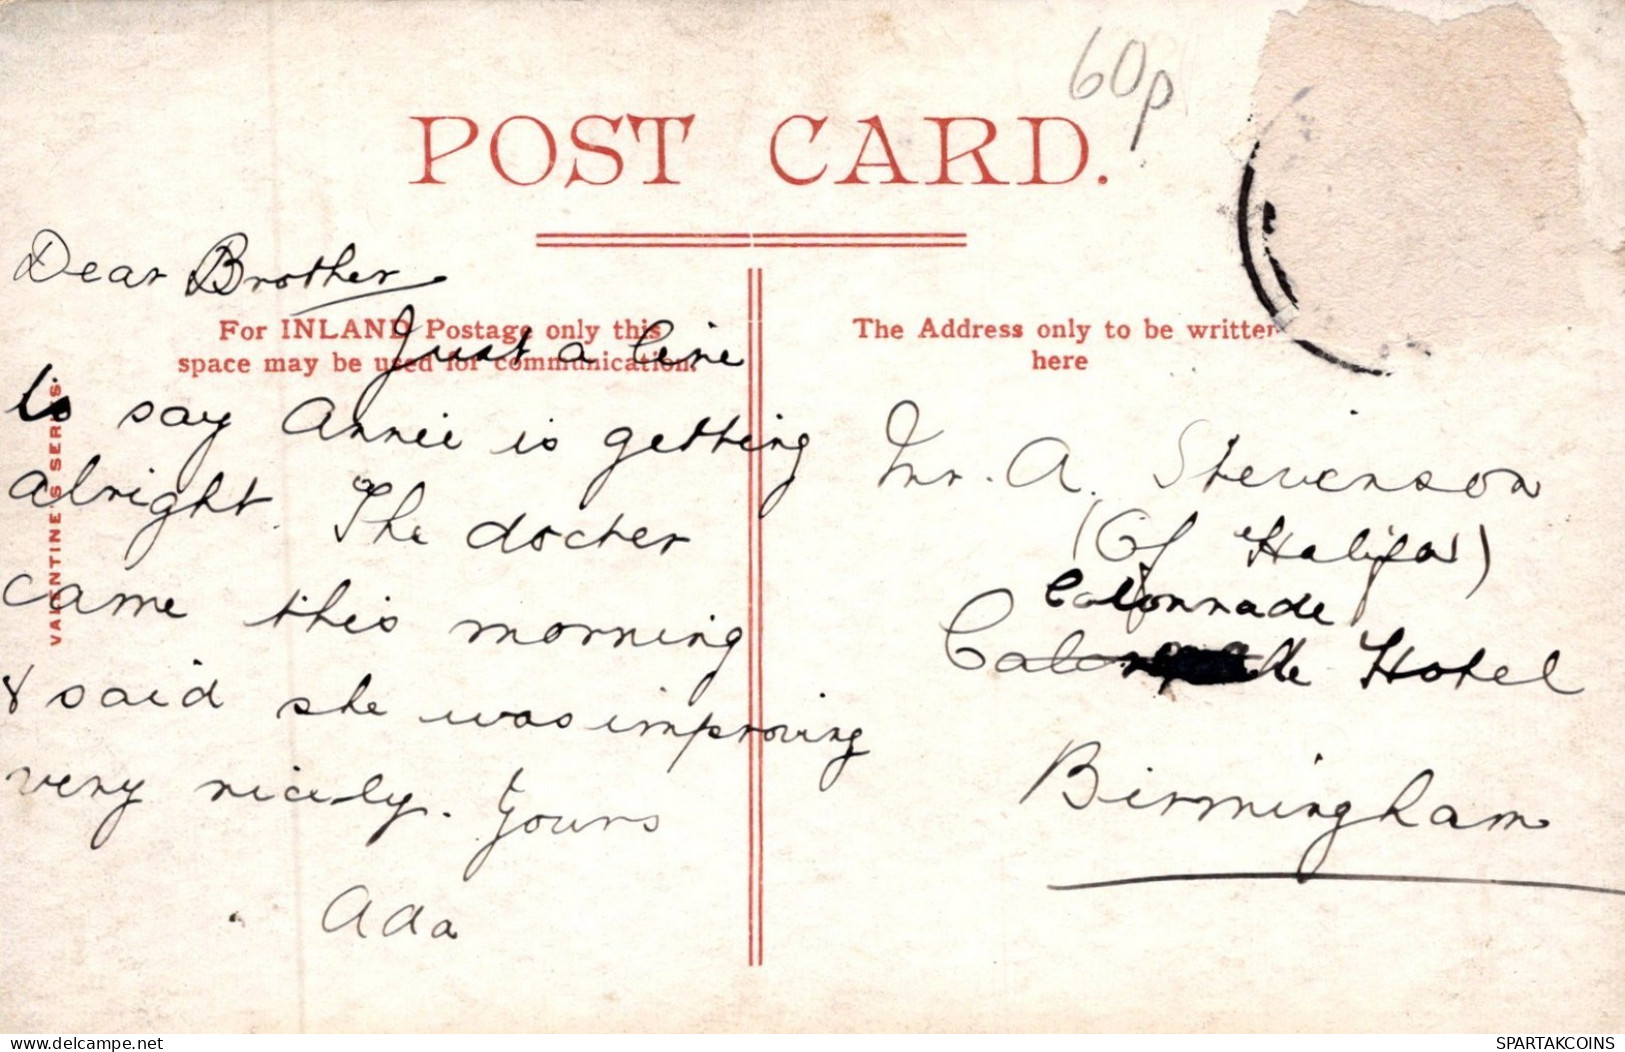 60p
POST CARD.
Dear Brother
For INLAND Postage only this
space may be used for communication.
Just a line
to say Annie is getting
alright. The docter
came this morning
& said she was improving
very nicely. Yours
Ada
VALENTINE'S SERIES
The Address only to be written
here
Mr. A. Stevenson
(Of Halifax)
Colonnade
Hotel
Birmingham
delcampe.net
SPARTAKCOINS